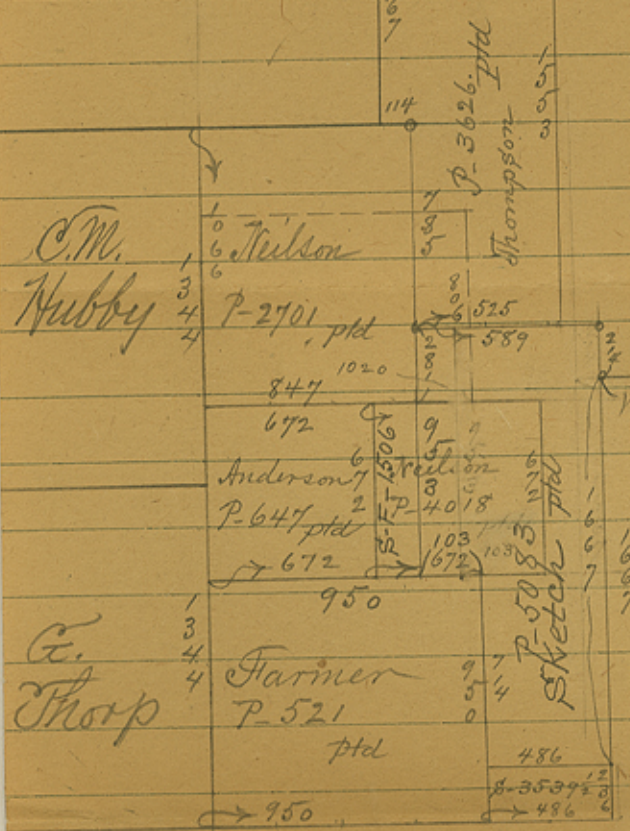 6
7
114
P-3626. ptd
Thompson
1553
C.M.
Hubby
1344
1066
Neilson
P-2701. ptd
785
806
525
589
281
24
1020
847
672
Anderson
P-647 ptd
672
672
S-F-1506
958
Neilson
P-4018
ptd
672
103
(672)
103
950
P-5083
Sketch ptd
1667
1667
G.
Thorp
1344
Farmer
P-521
ptd
950
74
486
S-3539½
236
486
950